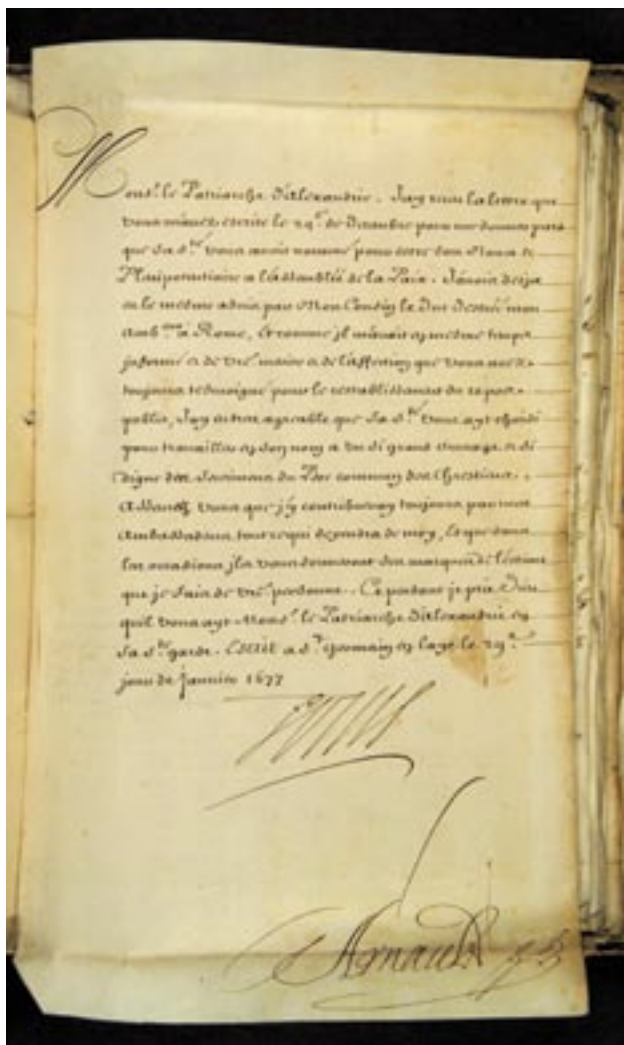 Mons.r le Patriarche d'Alexandrie. J'ay receu la lettre que
vous m'avez escrite le 24e de Decembre pour me donner part
que Sa S.té vous avoit nommé pour estre son Nonce et
Plenipotentiaire a l'assemblée de la Paix. J'avois desja
eu le mesme advis par Mon Cousin le Duc Destrées mon
Amb.eur à Rome, Et comme jl m'avoit en mesme temps
jnformé et de v're et de l'affection que vous avez
toujours tesmoigné pour le restablissement du repos
public, J'ay eu tres agreable que Sa S.té vous ayt choisi
pour travailler en son nom a un si grand ouvrage et si
digne des du Pere commun des Chrestiens.
Asseurez vous que j'y contribueray toujours par mes
Ambassadeurs tout ce qui dependra de moy, Et que dans
les occasions jls vous donneront des marques de l'estime
que je fais de v're personne. Ce pendant je prie Dieu
qu'il vous ayt Mons.r le Patriarche d'Alexandrie en
sa S.te garde. Escrit a S.t Germain en Laye le 29e
jour de Janvier 1677
Louis
Arnauld